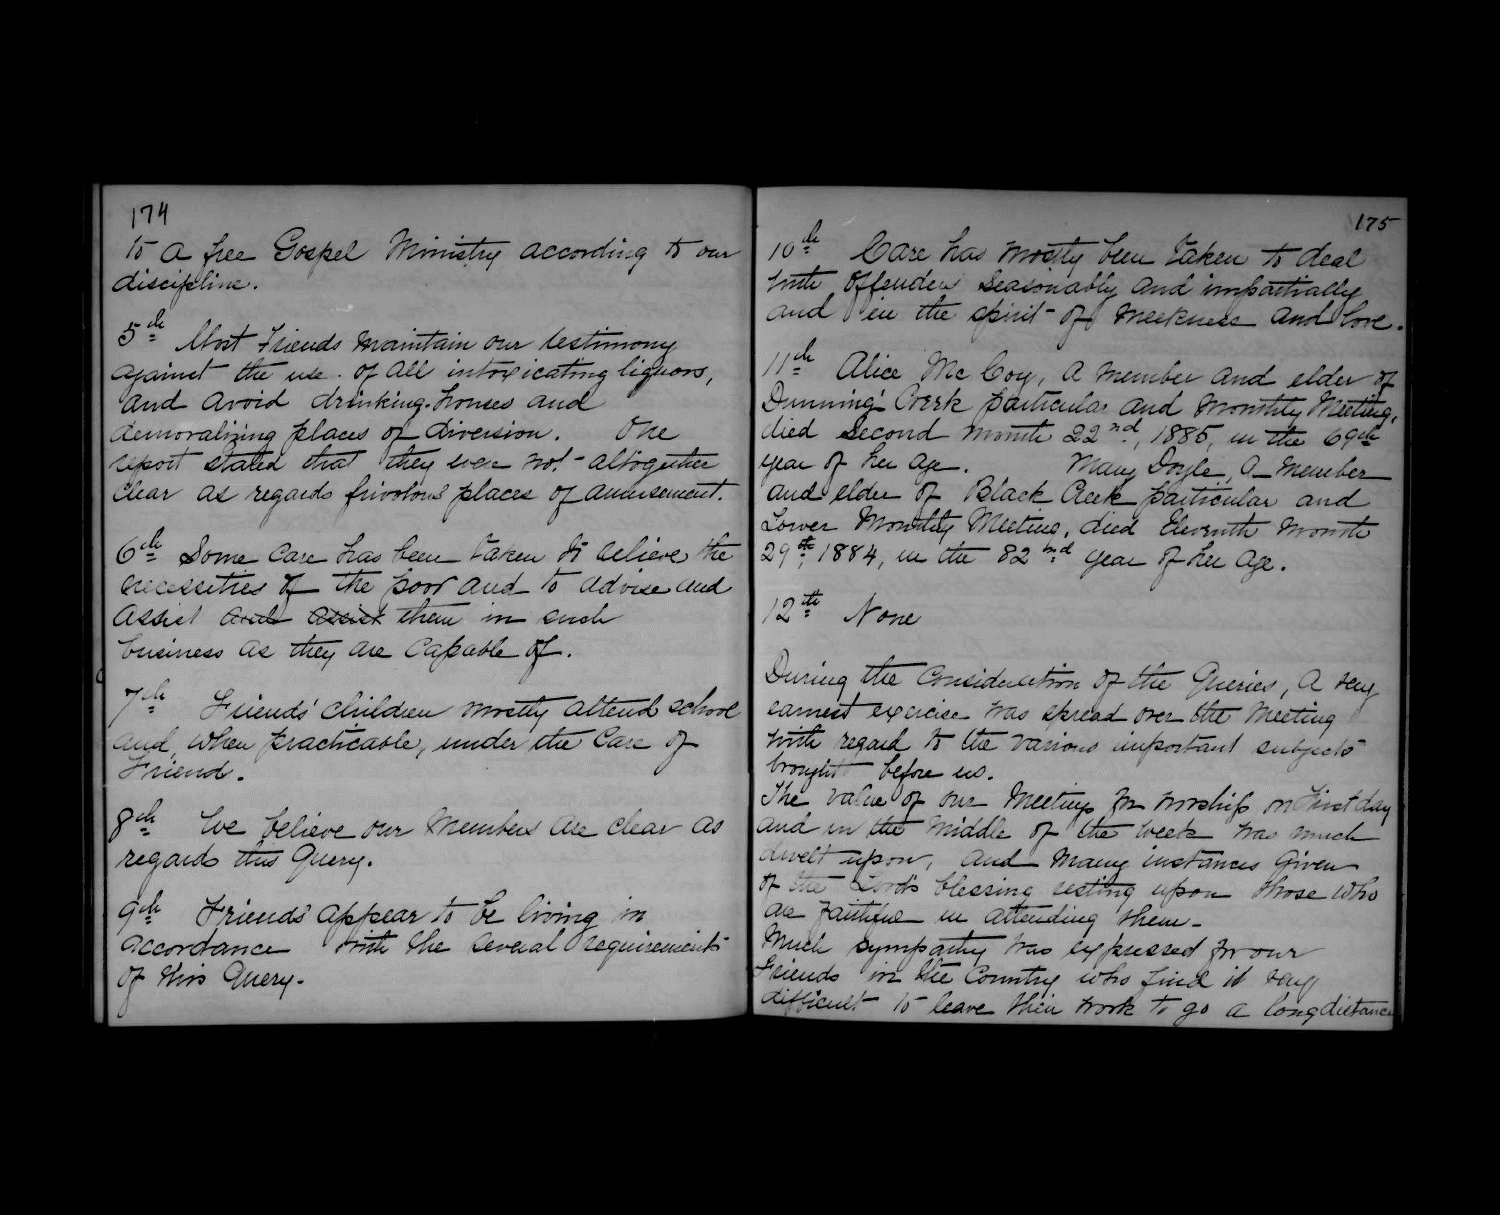 174
to a free Gospel Ministry according to our
discipline.
5th Most Friends maintain our testimony
against the use of all intoxicating liquors,
and avoid drinking-houses and
demoralizing places of diversion. One
report stated that they were not altogether
clear as regards frivolous places of amusement.
6th Some care has been taken to relieve the
necessities of the poor and to advise and
assist and assist them in such
business as they are capable of.
7th Friends' children mostly attend school
and, when practicable, under the care of
Friend.
8th We believe our members are clear as
regards this Query.
9th Friends appear to be living in
accordance with the several requirements
of this Query.
175
10th Care has mostly been taken to deal
with offenders seasonably and impartially
and in the spirit of meekness and love.
11th Alice McCoy, a member and elder of
Dunning's Creek particular and Monthly Meeting,
died Second month 22nd, 1885, in the 69th
year of her age. Mary Doyle, a member
and elder of Black Creek particular and
Lower Monthly Meeting, died Eleventh month
29th, 1884, in the 82nd year of her age.
12th None
During the consideration of the Queries, a very
earnest exercise was spread over the Meeting
with regard to the various important subjects
brought before us.
The value of our Meetings for worship on First day
and in the middle of the week was much
dwelt upon, and many instances given
of the Lord's blessing resting upon those who
are faithful in attending them.
Much sympathy was expressed for our
Friends in the Country who find it very
difficult to leave their work to go a long distance